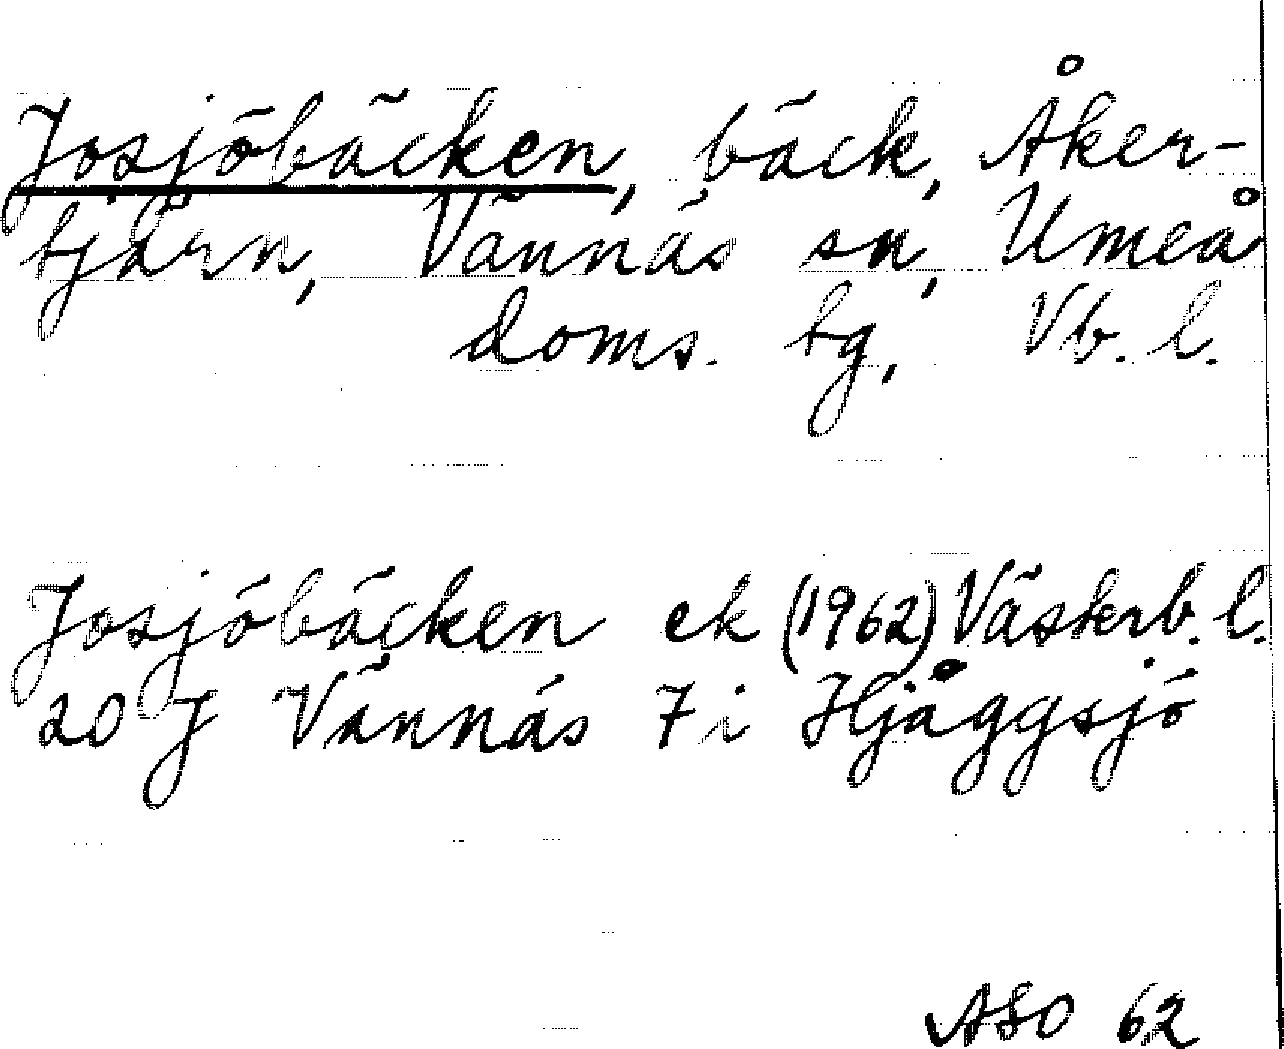 Josjöbäcken, bäck, Åker-
tjärn, Vännäs sn, Umeå
doms. tg, Vb. l.
Josjöbäcken ek (1962) Västerb. l.
20 J Vännäs 7 i Hjåggsjö
ASO 62